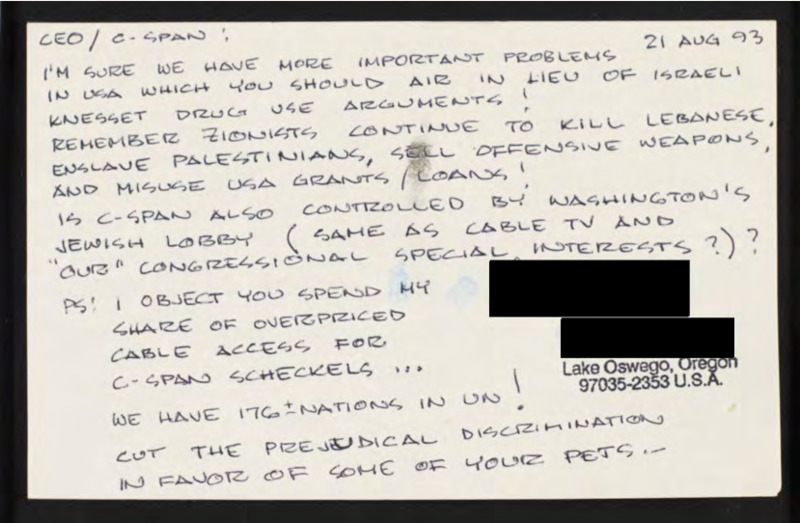 CEO / C-SPAN: 21 AUG 93
I'M SURE WE HAVE MORE IMPORTANT PROBLEMS
IN USA WHICH YOU SHOULD AIR IN LIEU OF ISRAELI
KNESSET DRUG USE ARGUMENTS!
REMEMBER ZIONISTS CONTINUE TO KILL LEBANESE,
ENSLAVE PALESTINIANS, SELL OFFENSIVE WEAPONS,
AND MISUSE USA GRANTS/LOANS!
IS C-SPAN ALSO CONTROLLED BY WASHINGTON'S
JEWISH LOBBY (SAME AS CABLE TV AND
"OUR" CONGRESSIONAL SPECIAL INTERESTS?)?
PS: I OBJECT YOU SPEND MY
SHARE OF OVERPRICED
CABLE ACCESS FOR
C-SPAN SCHECKELS ...
Lake Oswego, Oregon
97035-2353 U.S.A.
WE HAVE 176± NATIONS IN UN!
CUT THE PREJUDICAL DISCRIMINATION
IN FAVOR OF SOME OF YOUR PETS...